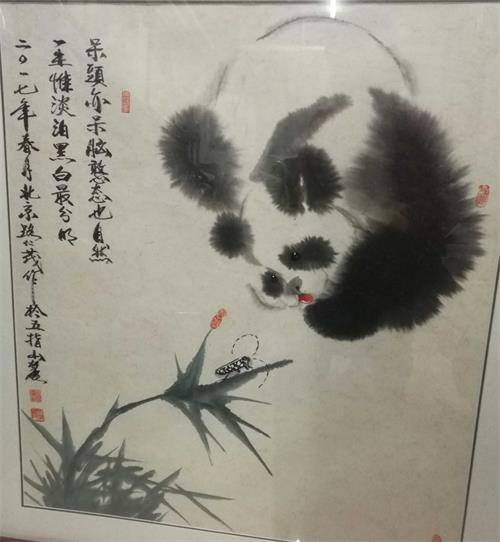 呆頭亦呆腦憨态也自然
一生惟淡泊黑白最分明
二〇一七年春月北京路仁茂作於五指山麓